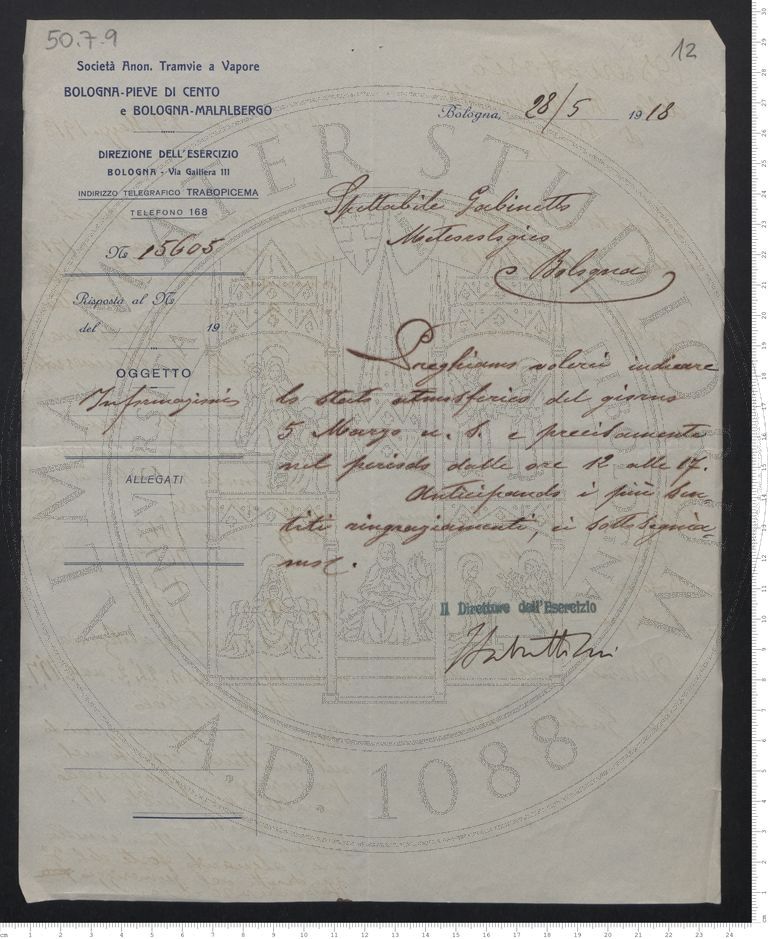 50.7.9
12
Società Anon. Tramvie a Vapore
BOLOGNA-PIEVE DI CENTO
e BOLOGNA-MALALBERGO
DIREZIONE DELL'ESERCIZIO
BOLOGNA - Via Galliera 111
INDIRIZZO TELEGRAFICO TRABOPICEMA
TELEFONO 168
Bologna, 28/5 1918
No 15605
Risposta al No
del 19
OGGETTO
Informazioni
ALLEGATI
Spettabile Gabinetto
Meteorologico
Bologna
Preghiamo volerci indicare
lo stato atmosferico del giorno
5 Marzo u. s. e precisamente
nel periodo dalle ore 12 alle 17.
Anticipando i più sen-
titi ringraziamenti, ci sottoscrivia-
mo.
Il Direttore dell'Esercizio
ALMA MATER STUDIORUM
A.D. 1088